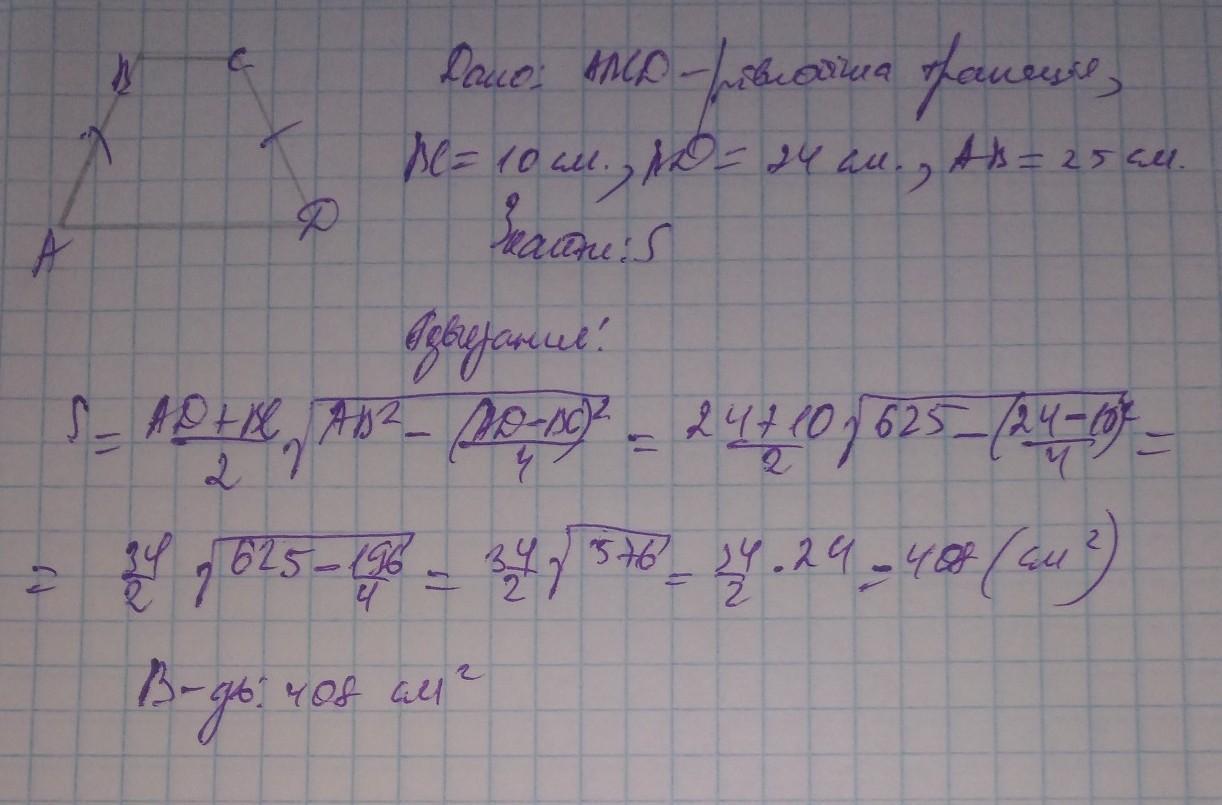 B C
A D
Дано: ABCD - рівнобічна трапеція,
BC = 10 см., AD = 24 см., AB = 25 см.
Знайти: S
Розв'язання:
S = (AD + BC)/2 √(AB² - (AD - BC)²/4) = (24 + 10)/2 √(625 - (24 - 10)²/4) =
= 34/2 √(625 - 196/4) = 34/2 √576 = 34/2 · 24 = 408 (см²)
В-дь: 408 см²